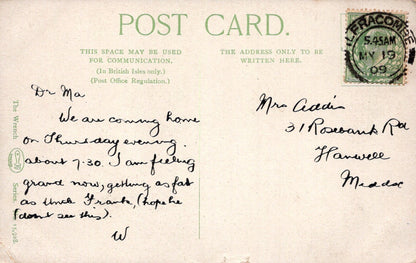 POST CARD.
THIS SPACE MAY BE USED
FOR COMMUNICATION.
(In British Isles only.)
(Post Office Regulation.)
THE ADDRESS ONLY TO BE
WRITTEN HERE.
ILFRACOMBE
5.45AM
MY 19
09
Dr Ma
We are coming home
on Thursday evening
about 7.30. I am feeling
grand now, getting as fat
as Uncle Frank, (hope he
don't see this).
W
Mrs Addis
31 Rosebank Rd
Hanwell
Middx
The Wrench
Series,